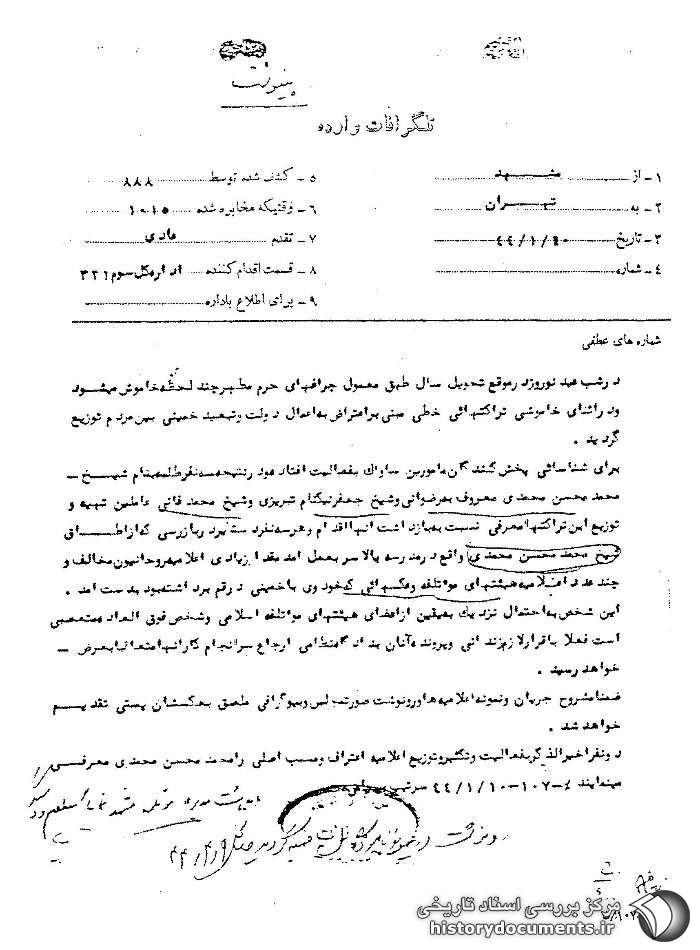 پینوشت
تلگرافات وارده
۱ - از مشهد
۲ - به تهران
۳ - تاریخ ۴۴/۱/۱۰
۴ - شماره
۵ - کشف شده توسط ۸۸۸
۶ - وقتیکه مخابره شده ۱۰۱۵
۷ - تقدم عادی
۸ - قسمت اقدام کننده اداره کل سوم ۳۲۱
۹ - برای اطلاع باداره
شماره های عطفی
در شب عید نوروز در موقع تحویل سال طبق معمول چراغهای حرم مطهر چند لحظه خاموش میشود
و در اثنای خاموشی تراکتهائی خطی مبنی بر اعتراض به اعمال دولت و تبعید خمینی بین مردم توزیع
گردید .
برای شناسائی پخش کنندگان مامورین ساواک بفعالیت افتاده و در نتیجه سه نفر طلبه بنام شیخ -
محمد محسن محمدی معروف به رضوانی و شیخ جعفر نیکنام تبریزی و شیخ محمد فانی عاملین تهیه و
توزیع این تراکتها معرفی نسبت به بازداشت آنها اقدام و هر سه نفر دستگیر و در بازرسی که از اطاق
شیخ محمد محسن محمدی واقع در مدرسه بالاسر بعمل آمد مقدار زیادی اعلامیه روحانیون مخالف و
چند عدد اعلامیه هیئتهای موتلفه و عکسهائی که خود وی با خمینی در قم برداشته بود بدست آمد .
این شخص به احتمال نزدیک به یقین از اعضای هیئتهای موتلفه اسلامی و شخص فوق العاده متعصبی
است فعلا با قرار لازم زندانی و پرونده آنان بدادگاه نظامی ارجاع سرانجام کار آنها متعاقبا بعرض -
خواهد رسید .
ضمنا مشروح جریان و نمونه اعلامیه ها و رونوشت صورتمجلس و بیوگرافی ملصق بعکسشان پستی تقدیم
خواهد شد .
دو نفر اخیرالذکر بفعالیت و تکثیر و توزیع اعلامیه اعتراف و مسبب اصلی را محمد محسن محمدی معرفی
مینمایند ۱۰۷-۴۴/۱/۱۰ سرتیپ
رونوشت در
۴۴/۴/۹
مرکز بررسی اسناد تاریخی
historydocuments.ir